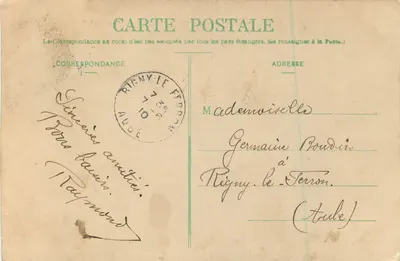 CARTE POSTALE
(La Correspondance au recto n'est pas acceptée par tous les pays étrangers, (Se renseigner à la Poste)
CORRESPONDANCE
ADRESSE
RIGNY-LE-FERRON
7
7 10
AUBE
Sincères amitiés.
Bons baisers.
Raymond
Mademoiselle
Germaine Boudin
à
Rigny-le-Ferron.
(Aube)